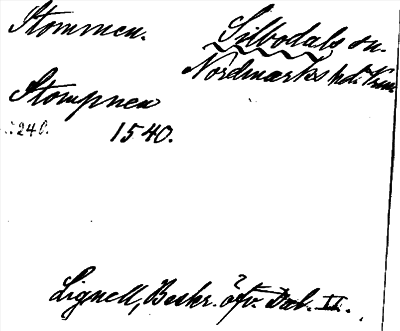 Stommen.
Silbodals sn.
Nordmarks hd. Vrm.
Stompnen
1540.
s. 240.
Lignell, Beskr. öfv. Dal. II.